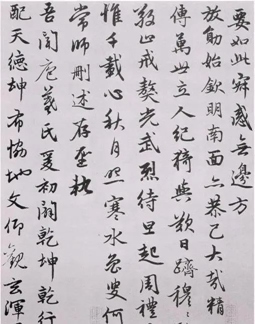 要如此寂感無邊方
放勛始欽明南面亦恭己大哉精
傳萬世立人紀猗與歎日躋穆
敬止戒獒光武烈待旦起周禮
惟千載心秋月照寒水魯叟何
常師刪述存聖軌
吾聞庖羲氏爰初闢乾坤乾行
配天德坤布協地文仰觀玄渾